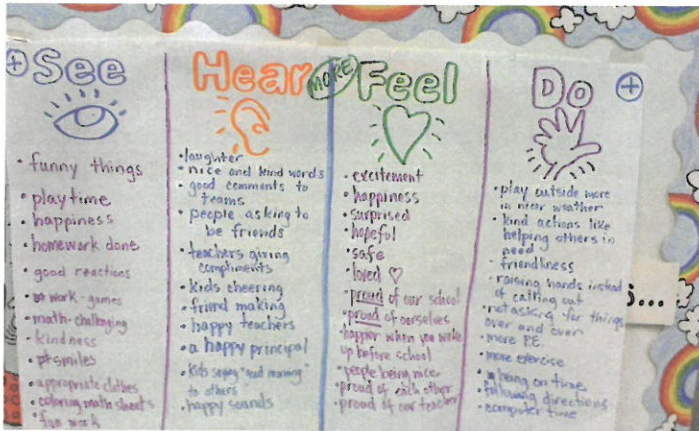 + See
funny things
playtime
happiness
homework done
good reactions
work-games
math-challenging
kindness
smiles
appropriate clothes
coloring math sheets
fun work
Hear
laughter
nice and kind words
good comments to
teams
people asking to
be friends
teachers giving
compliments
kids cheering
friend making
happy teachers
a happy principal
kids saying "good morning"
to others
happy sounds
MORE
Feel
excitement
happiness
surprised
hopeful
safe
loved ♡
proud of our school
proud of ourselves
happier when you wake
up before school
people being nice
proud of each other
proud of our teacher
Do +
play outside more
in nicer weather
kind actions like
helping others in
need
friendliness
raising hands instead
of calling out
not asking for things
over and over
more P.E.
more exercise
being on time
following directions
computer time
s...